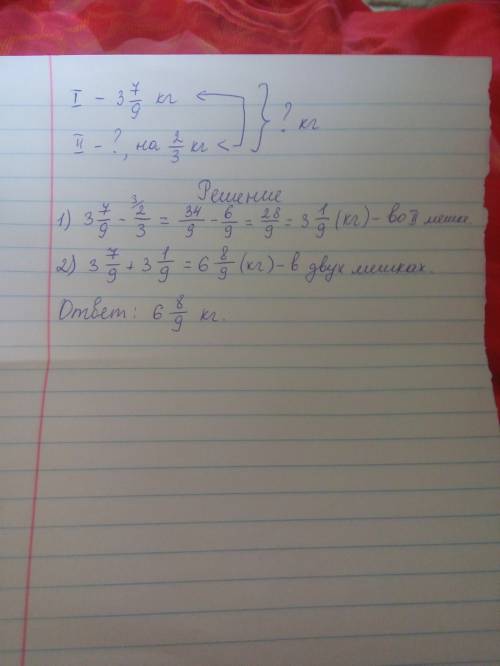 I – 3 7/9 кг
II – ?, на 2/3 кг <
} ? кг
Решение
1) 3 7/9 – 2/3 = 34/9 – 6/9 = 28/9 = 3 1/9 (кг) – во II мешке.
2) 3 7/9 + 3 1/9 = 6 8/9 (кг) – в двух мешках.
Ответ: 6 8/9 кг.